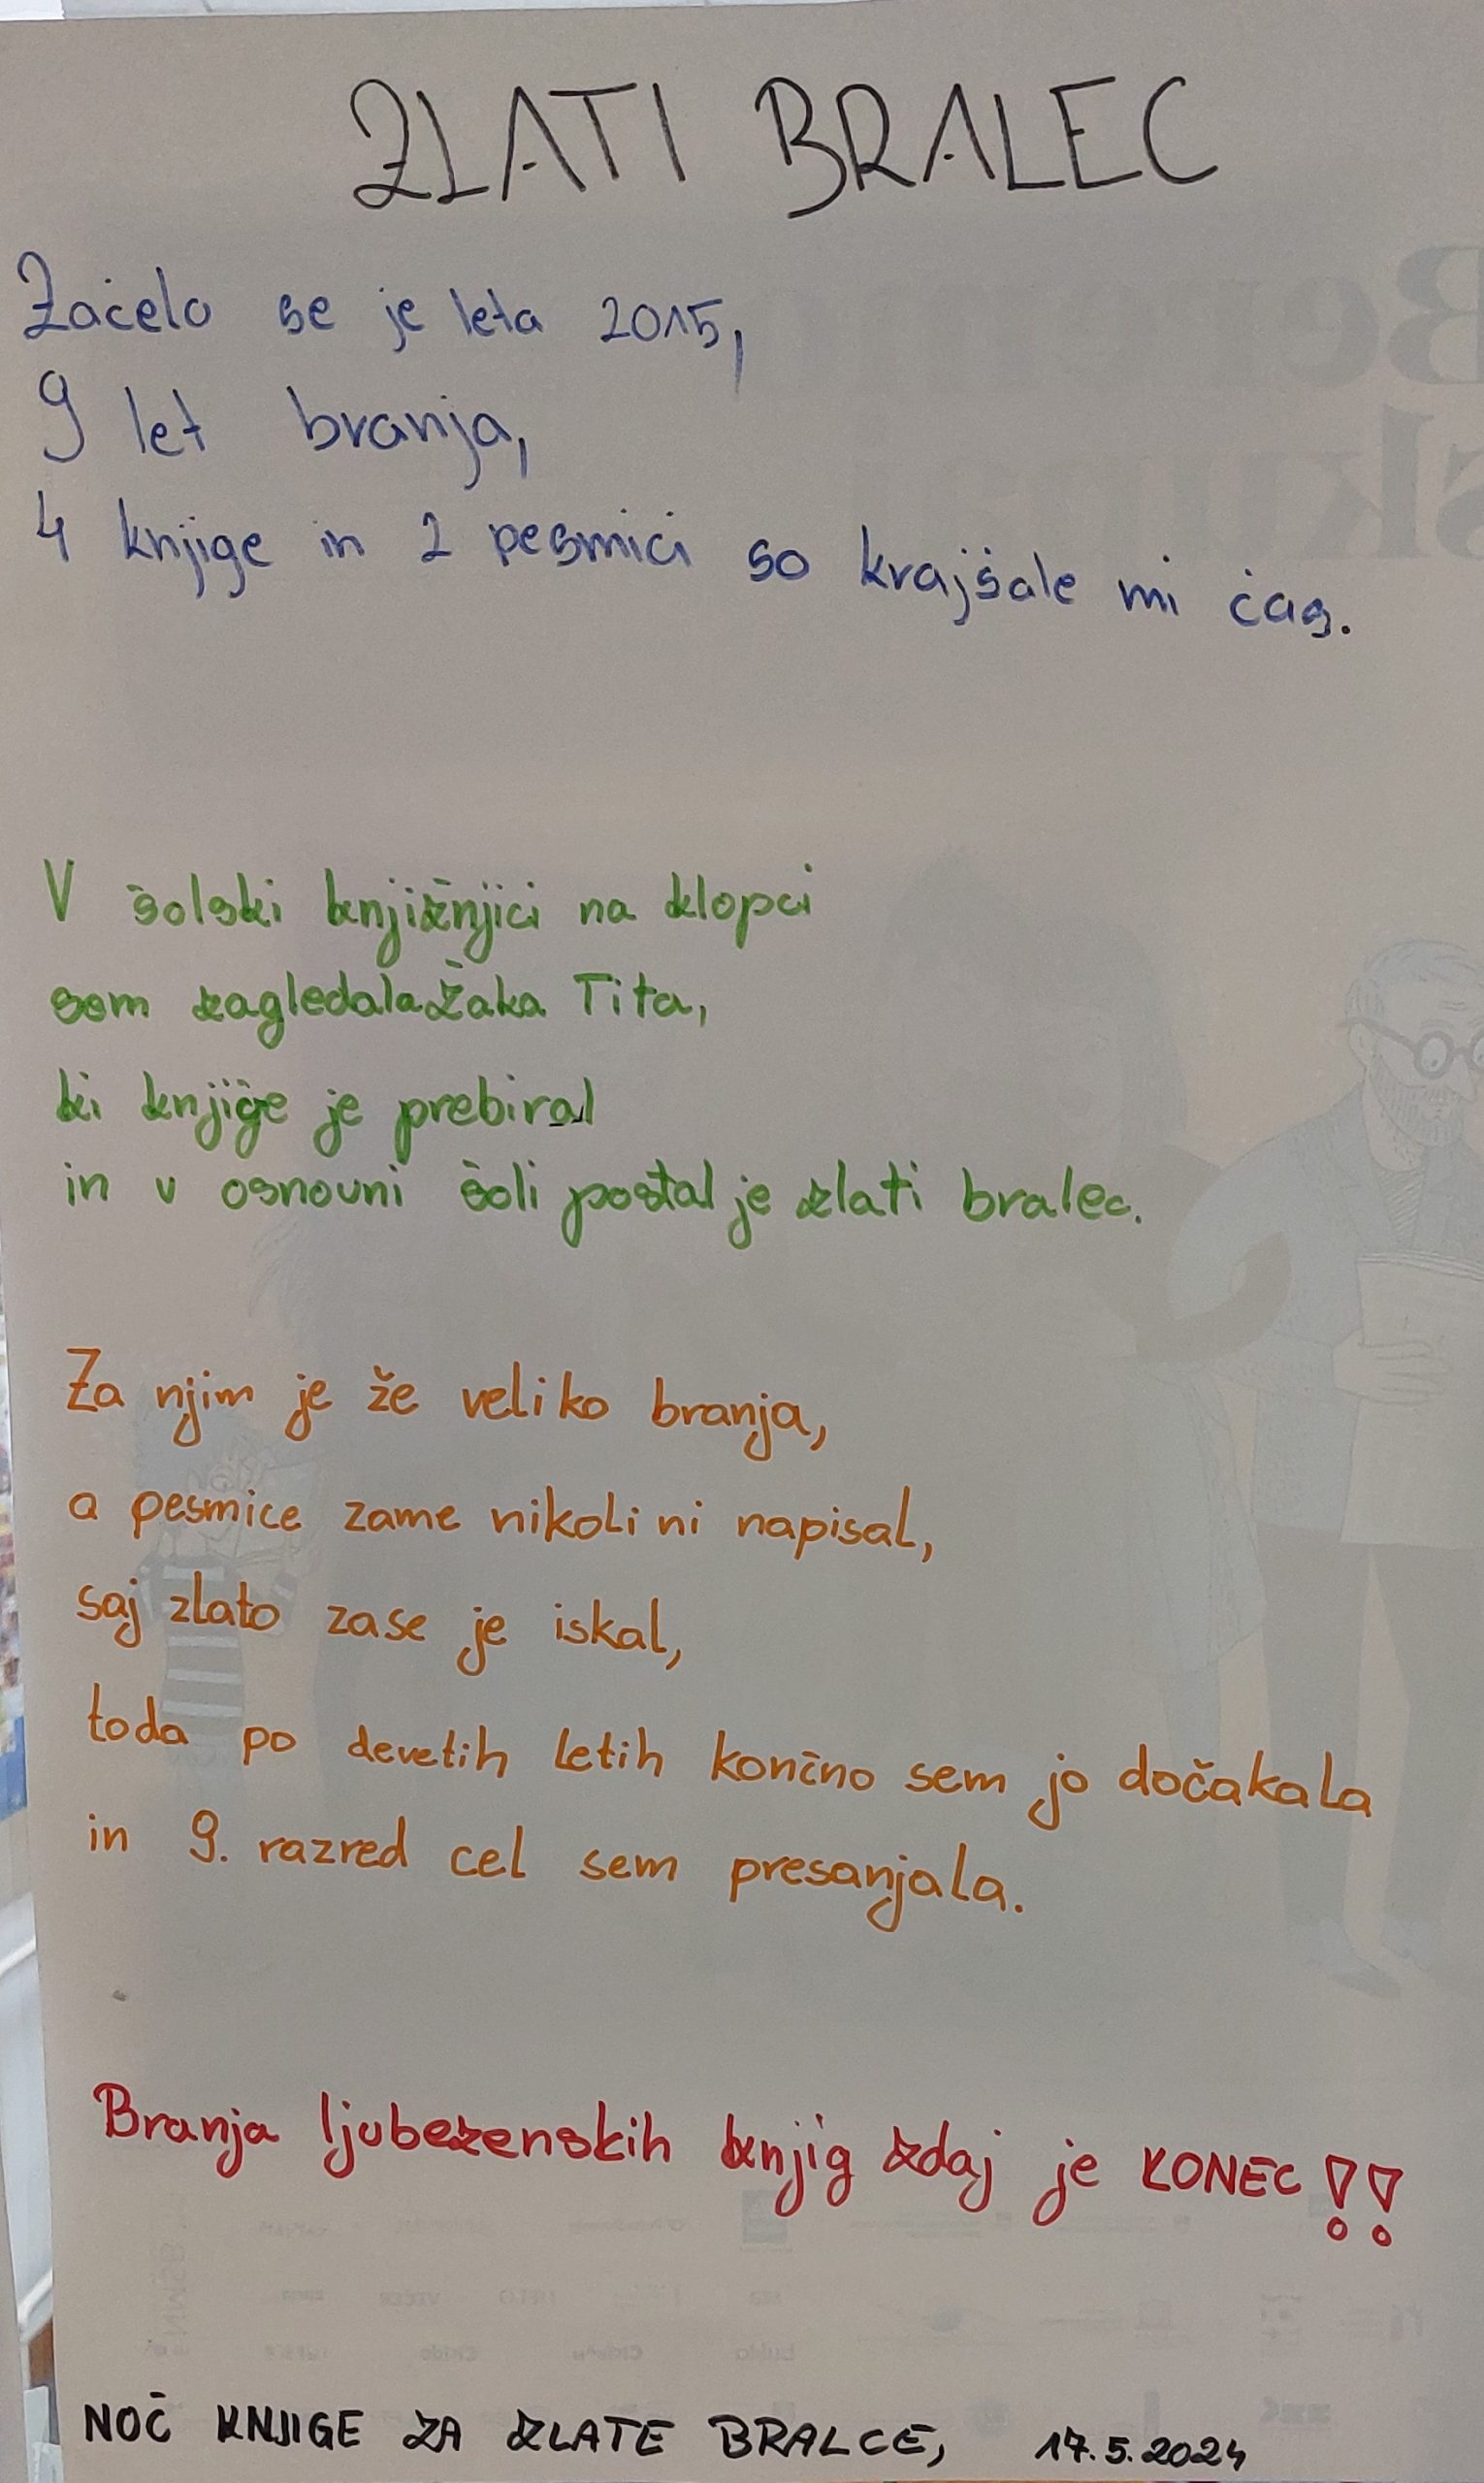 ZLATI BRALEC
Začelo se je leta 2015,
9 let branja,
4 knjige in 2 pesmici so krajšale mi čas.
V šolski knjižnjici na klopci
sem zagledala Žaka Tita,
ki knjige je prebiral
in v osnovni šoli postal je zlati bralec.
Za njim je že veliko branja,
a pesmice zame nikoli ni napisal,
saj zlato zase je iskal,
toda po devetih letih končno sem jo dočakala
in 9. razred cel sem presanjala.
Branja ljubezenskih knjig zdaj je KONEC!!
NOČ KNJIGE ZA ZLATE BRALCE, 17.5.2024